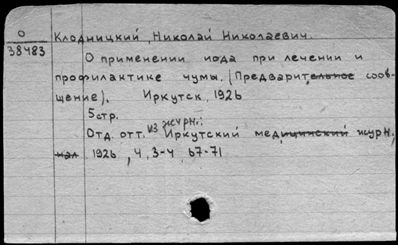 О
38483
Клодницкий, Николай Николаевич.
О применении иода при лечении и
профилактике чумы. (Предварительное сооб-
щение). Иркутск, 1926
5 стр.
Отд. отт. из журн.: Иркутский медицинский журн.
иал 1926, 4, 3-4, 67-71